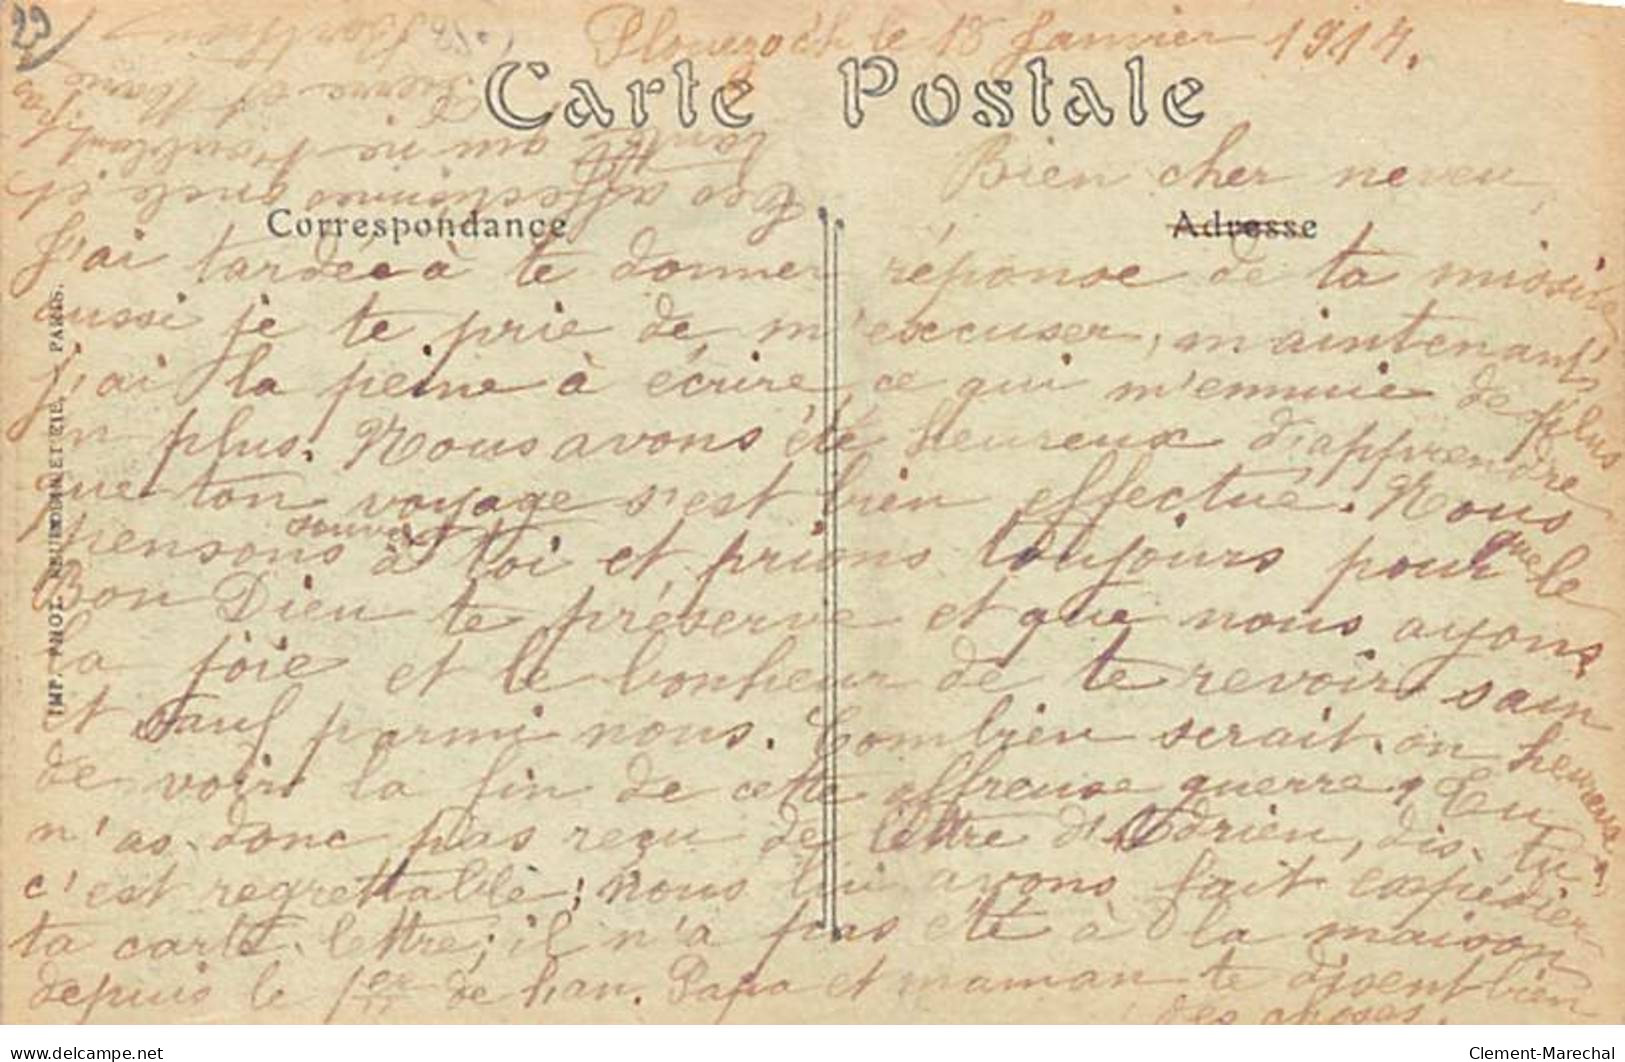 29
Plouezoc'h le 18 Janvier 1917.
Carte Postale
Bien cher neveu,
Correspondance Adresse
J'ai tardée à te donner réponse de ta missive
aussi je te prie de m'excuser, maintenant
j'ai la peine à écrire, ce qui m'ennuie de plus
en plus. Nous avons été heureux d'apprendre
que ton voyage s'est bien effectué. Nous
pensons souvent à toi et prions toujours pour que le
Bon Dieu te préserve et que nous ayons
la joie et le bonheur de te revoir sain
et sauf parmi nous. Combien serait-on heureux
de voir la fin de cette affreuse guerre. Tu
n'as donc pas reçu de lettre d'Adrien, dis-tu,
c'est regrettable; nous lui avons fait expédier
ta carte-lettre; il n'a pas été à la maison
depuis le 1er de l'an. Papa et maman te disent bien
des choses.
Tes affectionnés oncle et
tante qui ne t'oublient pas
Pierre et Marie
IMP. PHOT. NEURDEIN ET CIE. PARIS.
www.delcampe.net Clement-Marechal